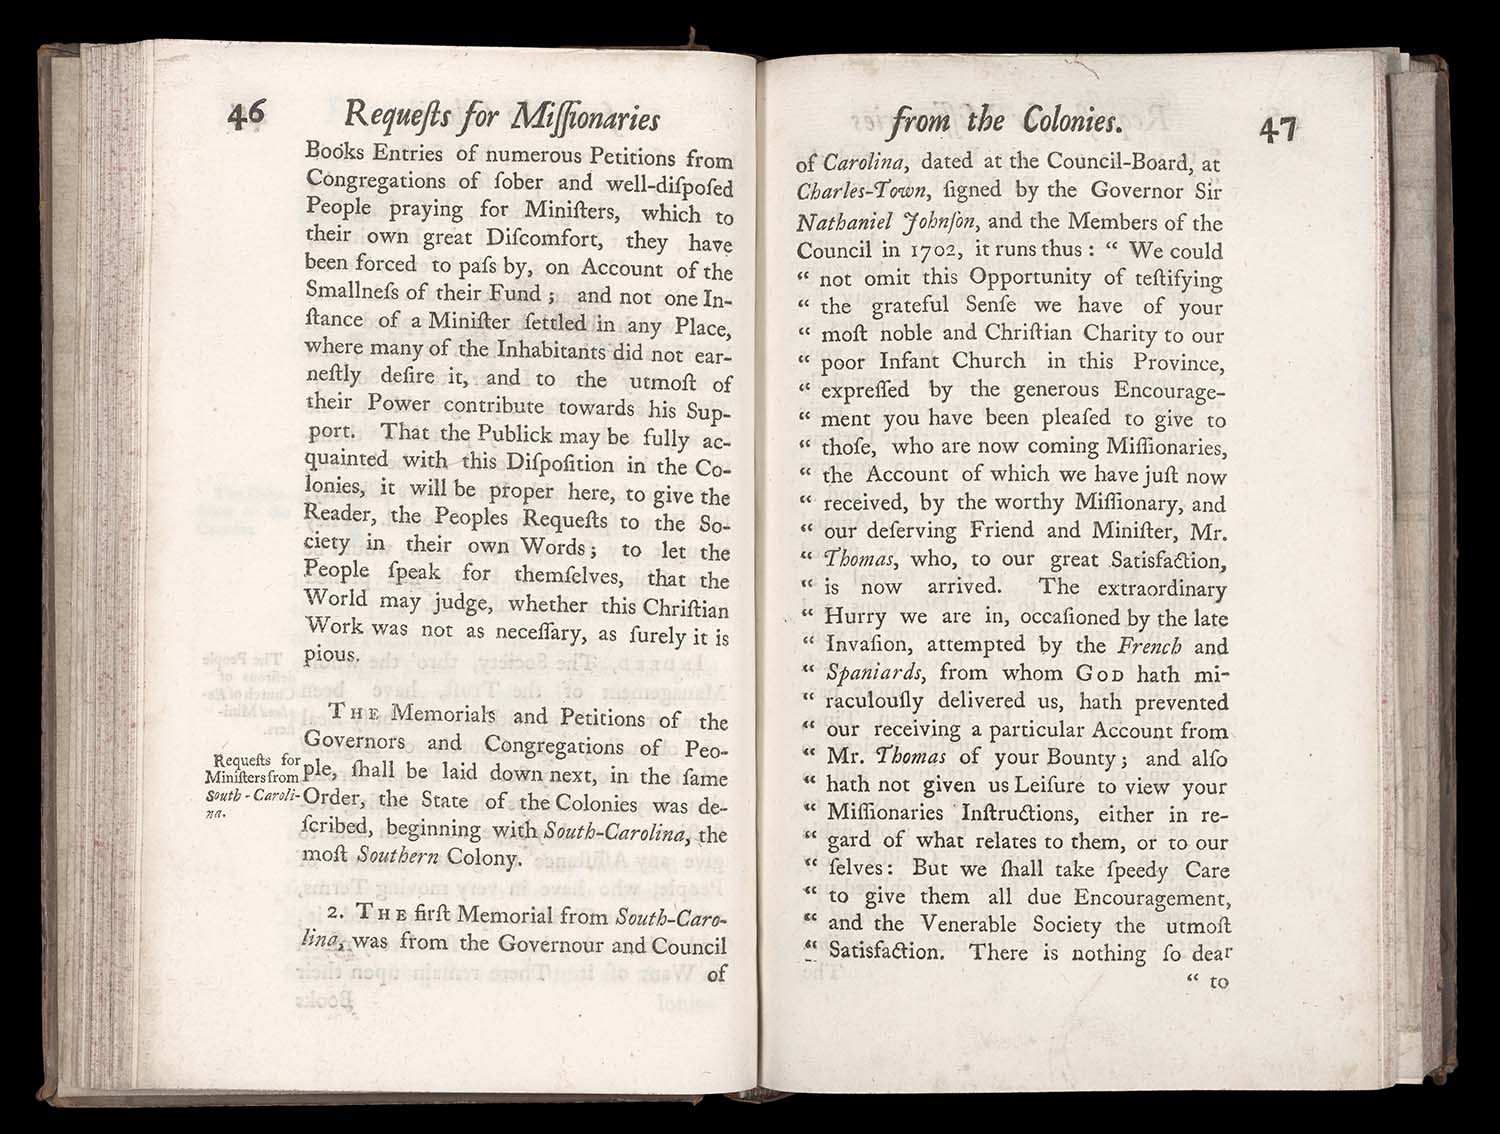 46 Requeſts for Miſſionaries
Books Entries of numerous Petitions from
Congregations of ſober and well-diſpoſed
People praying for Miniſters, which to
their own great Diſcomfort, they have
been forced to paſs by, on Account of the
Smallneſs of their Fund; and not one In-
ſtance of a Miniſter ſettled in any Place,
where many of the Inhabitants did not ear-
neſtly deſire it, and to the utmoſt of
their Power contribute towards his Sup-
port. That the Publick may be fully ac-
quainted with this Diſpoſition in the Co-
lonies, it will be proper here, to give the
Reader, the Peoples Requeſts to the So-
ciety in their own Words; to let the
People ſpeak for themſelves, that the
World may judge, whether this Chriſtian
Work was not as neceſſary, as ſurely it is
pious.
THE Memorials and Petitions of the
Governors and Congregations of Peo-
ple, ſhall be laid down next, in the ſame
Order, the State of the Colonies was de-
ſcribed, beginning with South-Carolina, the
moſt Southern Colony.
Requeſts for
Miniſters from
South-Caroli-
na.
2. THE firſt Memorial from South-Caro-
lina, was from the Governour and Council
of
from the Colonies. 47
of Carolina, dated at the Council-Board, at
Charles-Town, ſigned by the Governor Sir
Nathaniel Johnſon, and the Members of the
Council in 1702, it runs thus: “ We could
“ not omit this Opportunity of teſtifying
“ the grateful Senſe we have of your
“ moſt noble and Chriſtian Charity to our
“ poor Infant Church in this Province,
“ expreſſed by the generous Encourage-
“ ment you have been pleaſed to give to
“ thoſe, who are now coming Miſſionaries,
“ the Account of which we have juſt now
“ received, by the worthy Miſſionary, and
“ our deſerving Friend and Miniſter, Mr.
“ Thomas, who, to our great Satisfaction,
“ is now arrived. The extraordinary
“ Hurry we are in, occaſioned by the late
“ Invaſion, attempted by the French and
“ Spaniards, from whom GOD hath mi-
“ raculouſly delivered us, hath prevented
“ our receiving a particular Account from
“ Mr. Thomas of your Bounty; and alſo
“ hath not given us Leiſure to view your
“ Miſſionaries Inſtructions, either in re-
“ gard of what relates to them, or to our
“ ſelves: But we ſhall take ſpeedy Care
“ to give them all due Encouragement,
“ and the Venerable Society the utmoſt
“ Satisfaction. There is nothing ſo dear
“ to